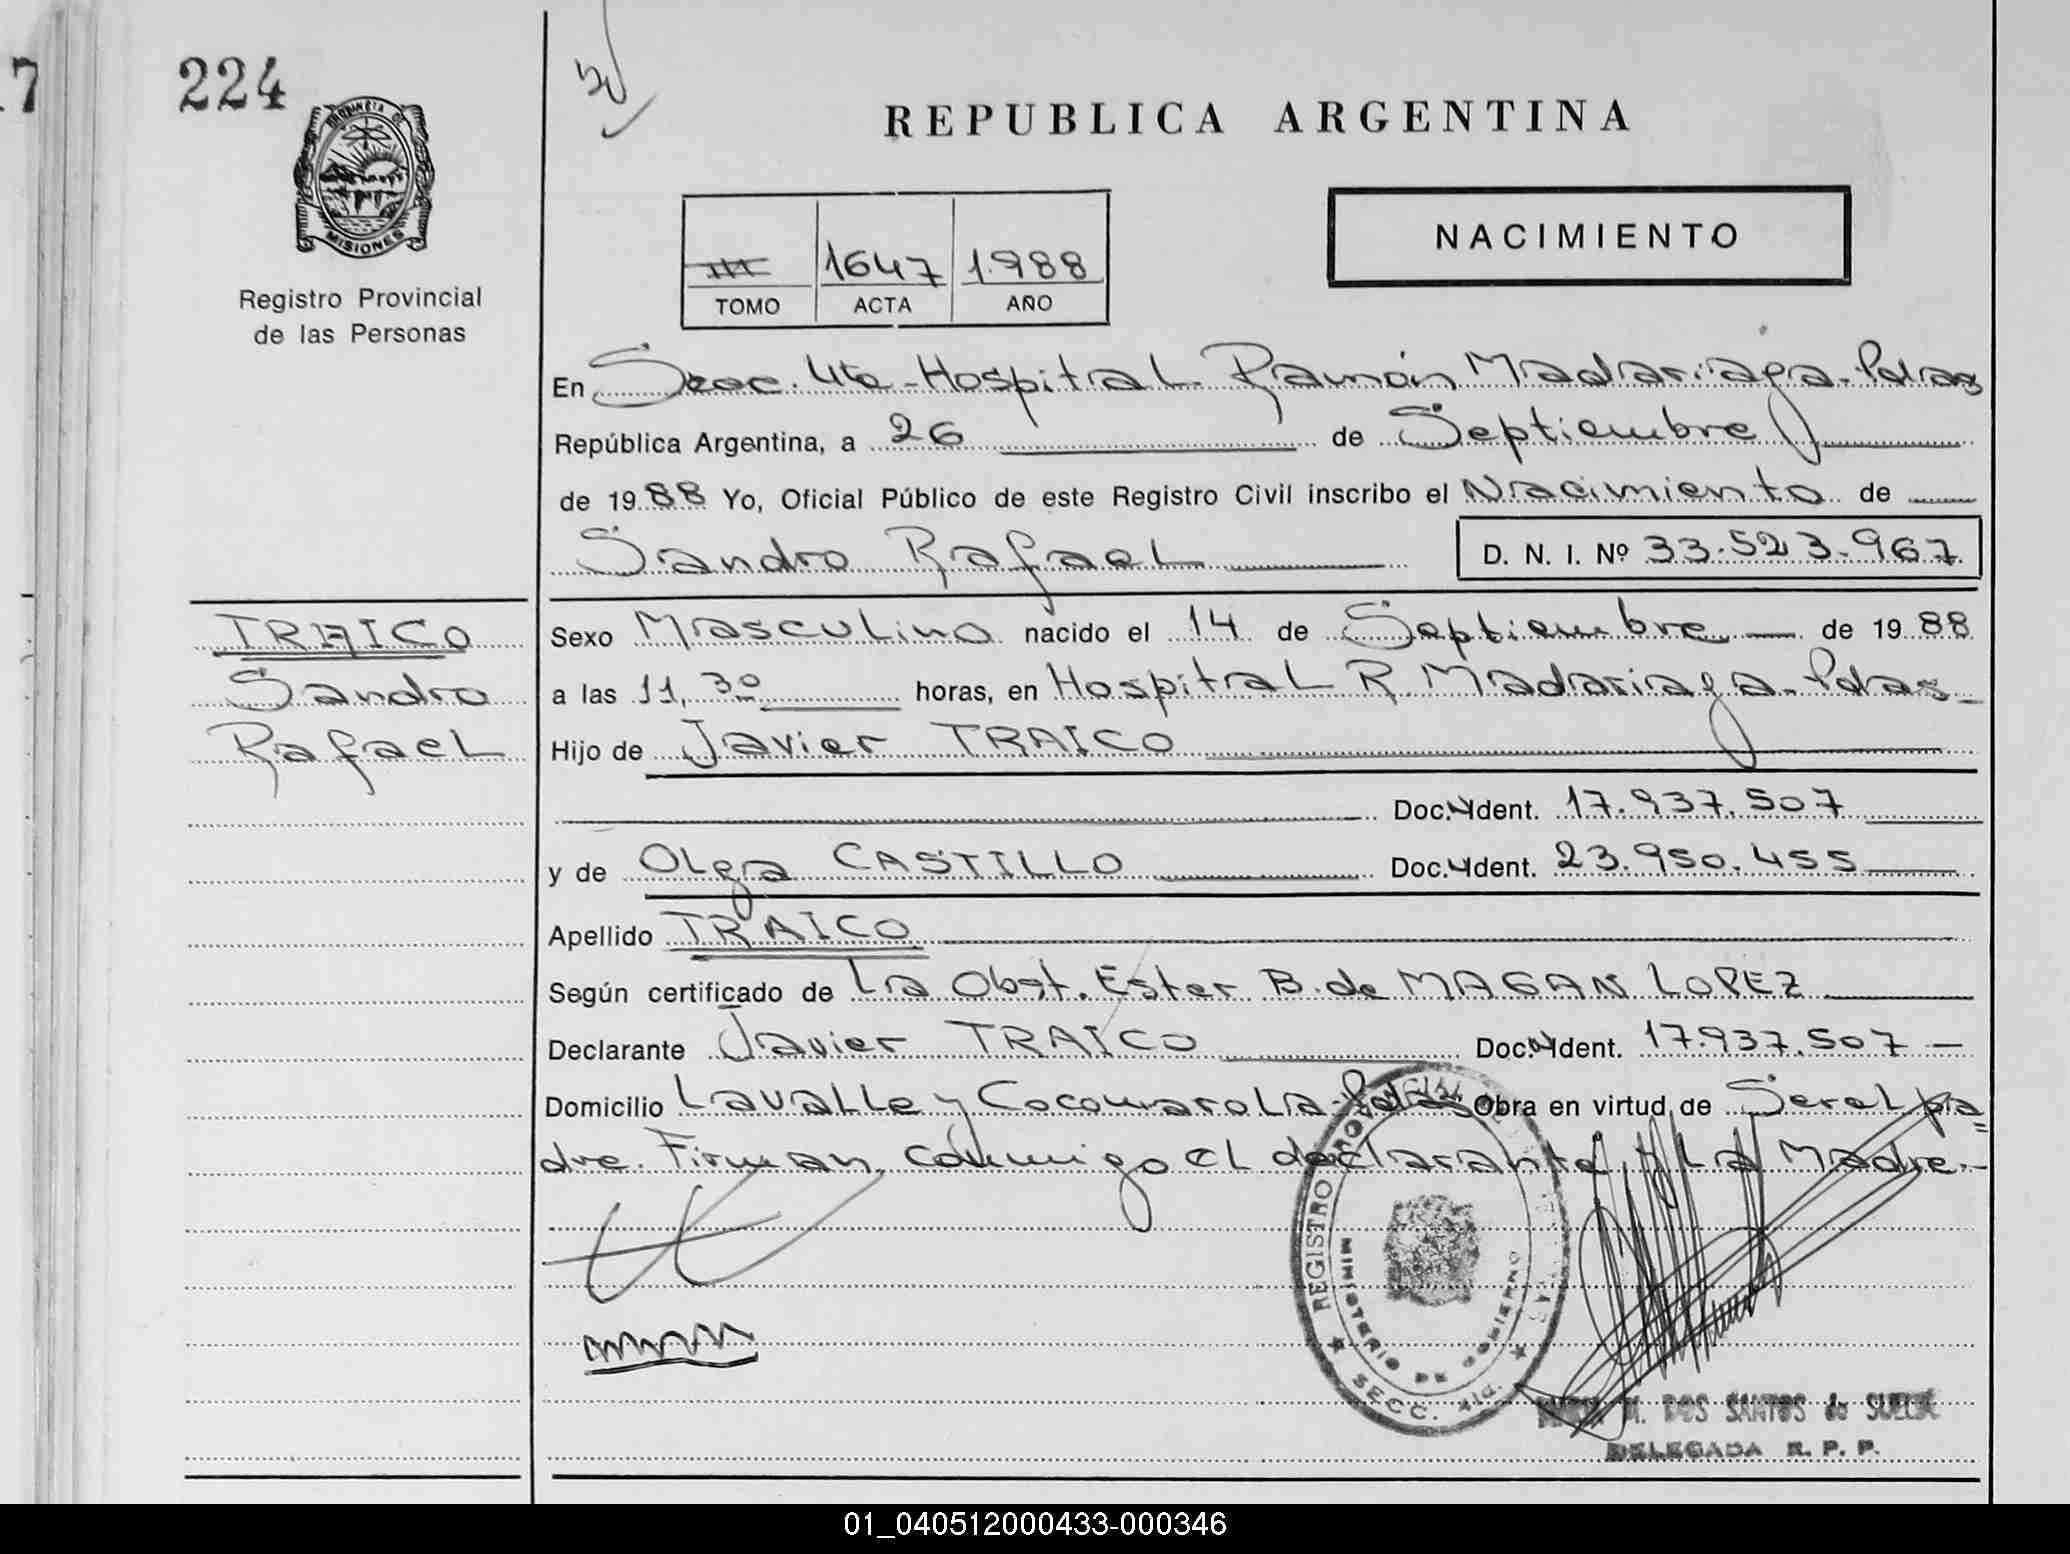 17
224
PROVINCIA DE
MISIONES
Registro Provincial
de las Personas
REPUBLICA ARGENTINA
NACIMIENTO
III 1647 1.988
TOMO ACTA AÑO
En Secc. 4ta - Hospital Ramón Madariaga - Pdas
República Argentina, a 26 de Septiembre
de 1988 Yo, Oficial Público de este Registro Civil inscribo el Nacimiento de
Sandro Rafael D. N. I. Nº 33.523.967
TRAICO
Sandro
Rafael
Sexo Masculino nacido el 14 de Septiembre de 1988
a las 11,30 horas, en Hospital R. Madariaga - Pdas
Hijo de Javier TRAICO
Doc. Ident. 17.937.507
y de Olga CASTILLO Doc. Ident. 23.950.455
Apellido TRAICO
Según certificado de La Obst. Ester B. de MAGAN LOPEZ
Declarante Javier TRAICO Doc. Ident. 17.937.507 -
Domicilio Lavalle y Cocomarola - Pdas Obra en virtud de Ser el pa=
dre. Firman conmigo el declarante y La Madre.-
REGISTRO PROVINCIAL
MINISTERIO DE GOBIERNO
SECC. 4ta.
M. DOS SANTOS de
DELEGADA R. P. P.
01_040512000433-000346